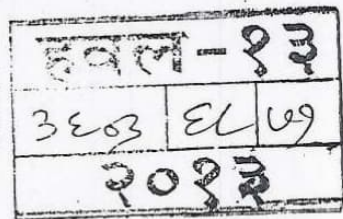 हवल-१३
३६०३ ६८ ७१
२०१३